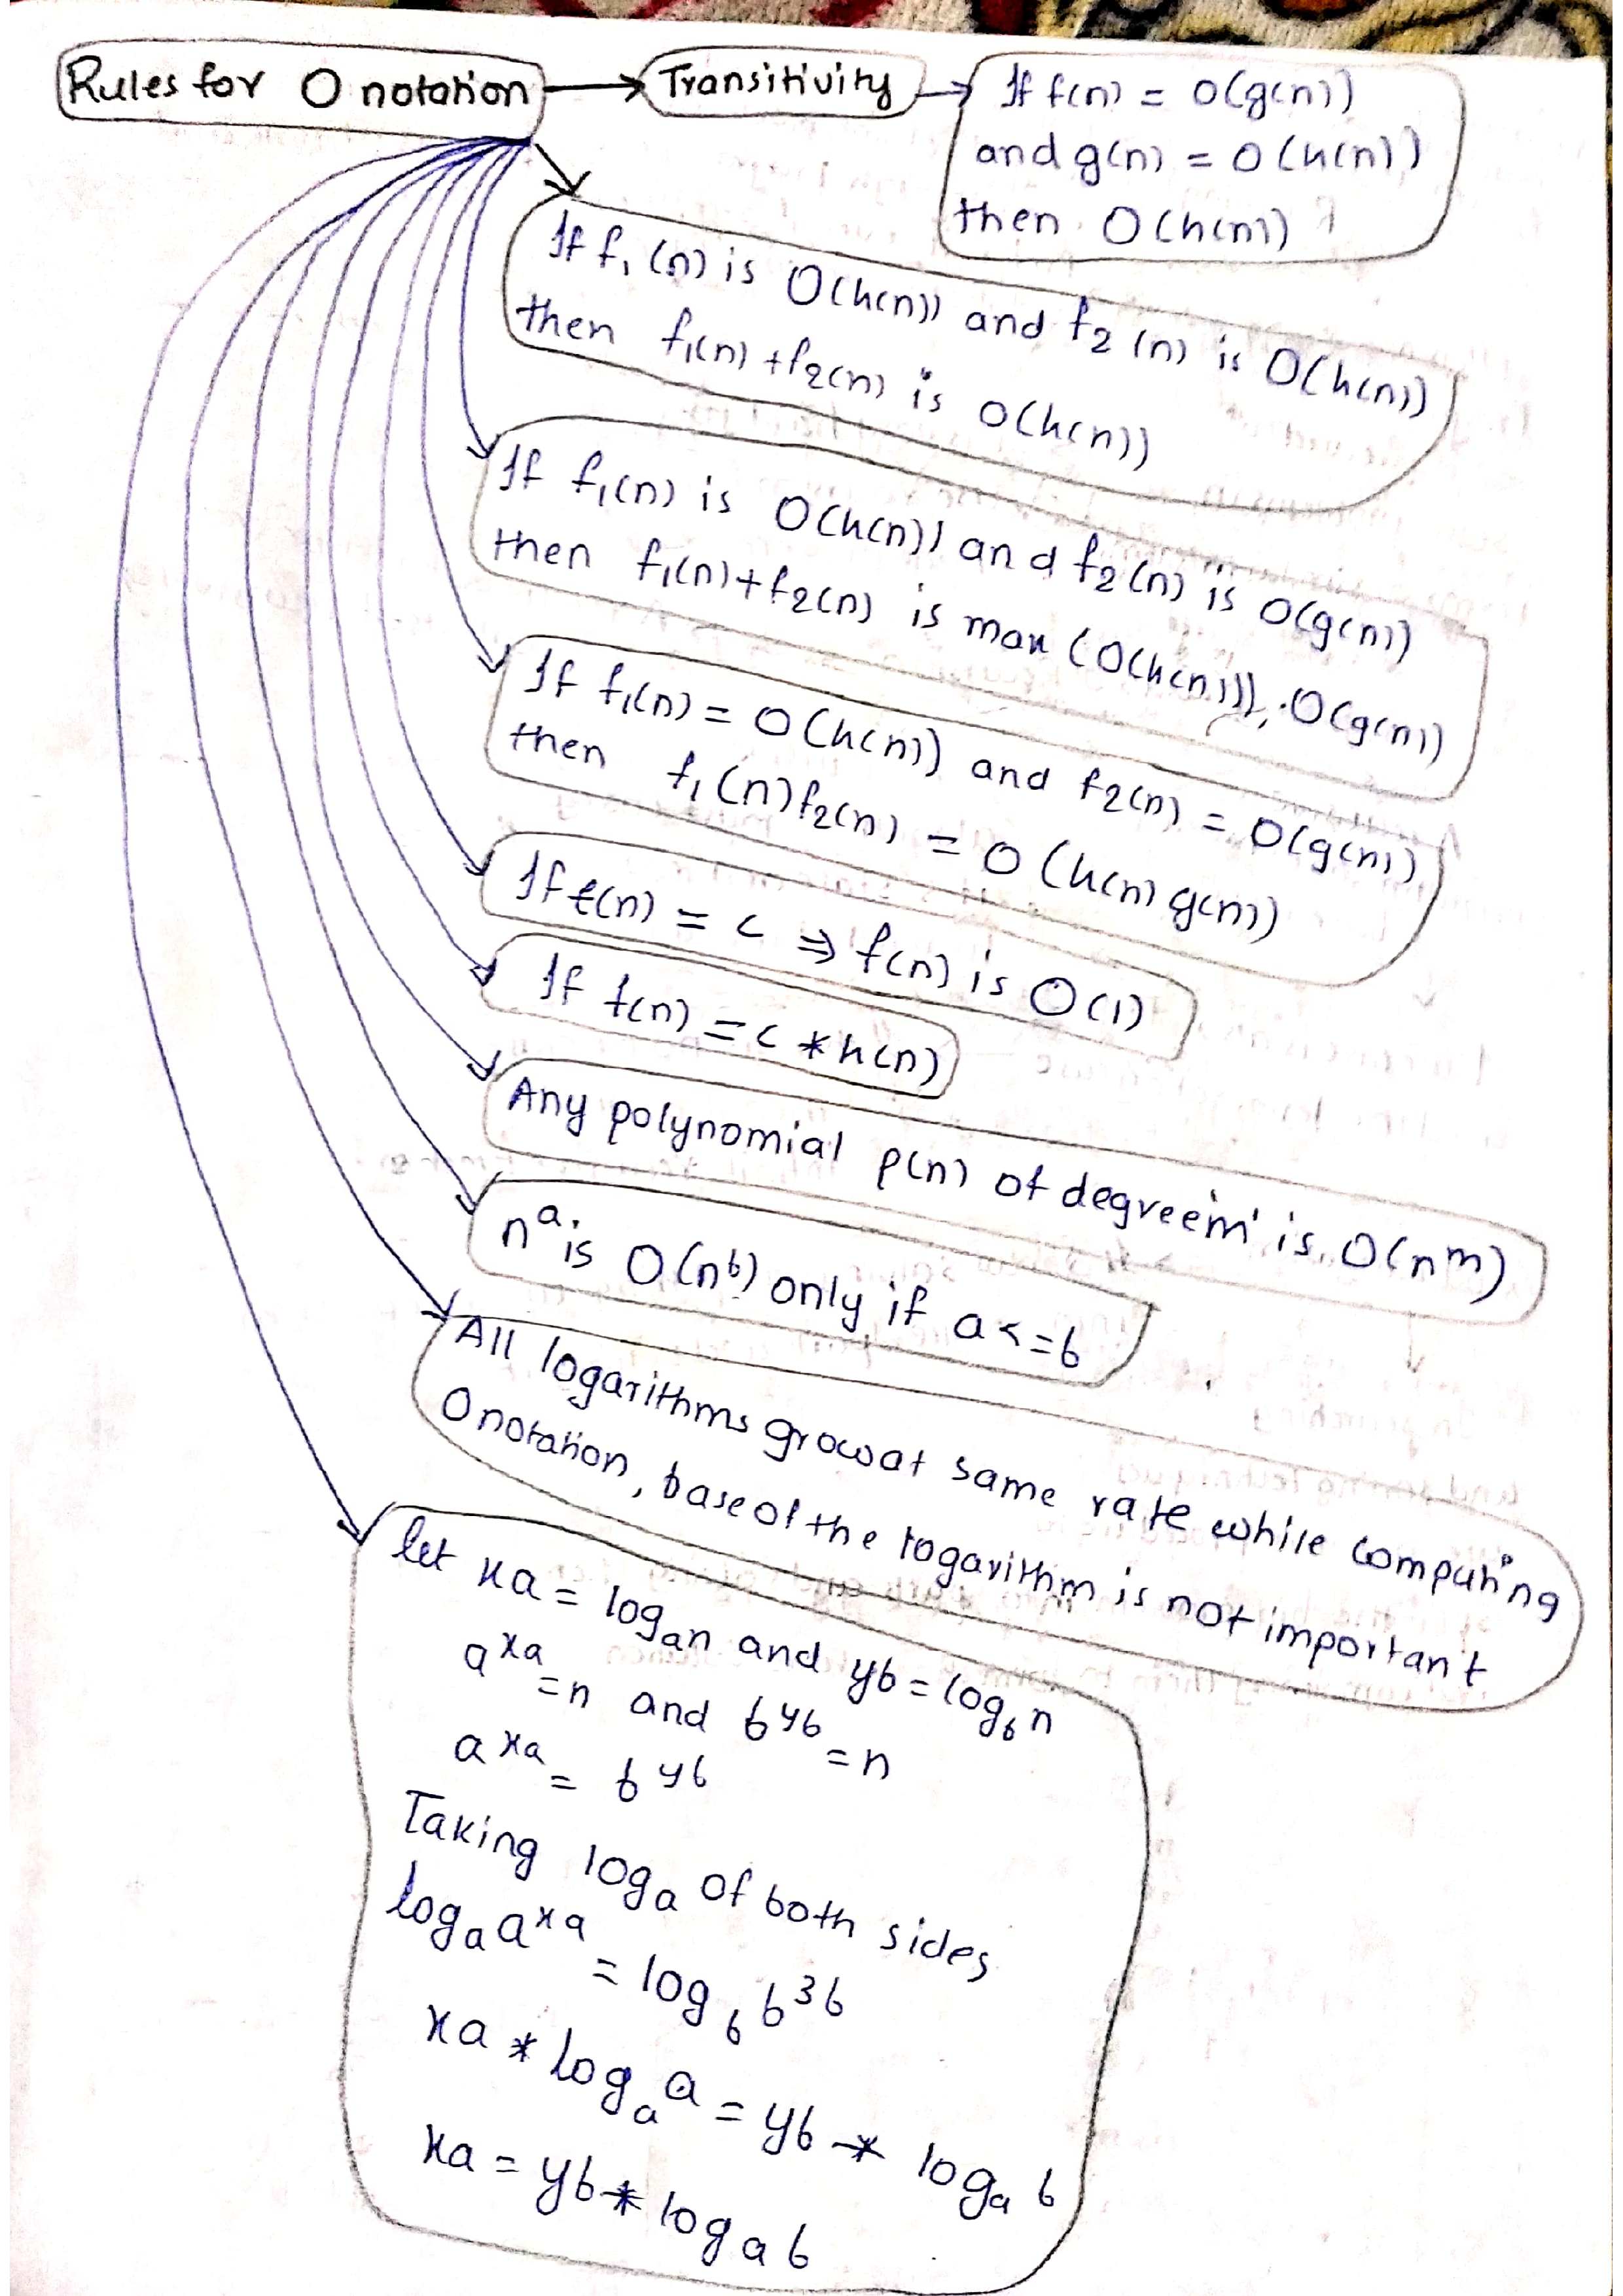 Rules for O notation
Transitivity
If f(n) = O(g(n))
and g(n) = O(h(n))
then O(h(n))
If f₁(n) is O(h(n)) and f₂(n) is O(h(n))
then f₁(n) + f₂(n) is O(h(n))
If f₁(n) is O(h(n)) and f₂(n) is O(g(n))
then f₁(n) + f₂(n) is max (O(h(n))), O(g(n))
If f₁(n) = O(h(n)) and f₂(n) = O(g(n))
then f₁(n) f₂(n) = O(h(n) g(n))
If f(n) = c ⇒ f(n) is O(1)
If f(n) = c * h(n)
Any polynomial p(n) of degree 'm' is O(nᵐ)
nᵃ is O(nᵇ) only if a <= b
All logarithms grow at same rate while computing
O notation, base of the logarithm is not important
let xa = logₐn and yb = log_b n
a^xa = n and b^yb = n
a^xa = b^yb
Taking logₐ of both sides
logₐ a^xa = log_b b^3b
xa * logₐ a = yb * logₐ b
xa = yb * logₐ b